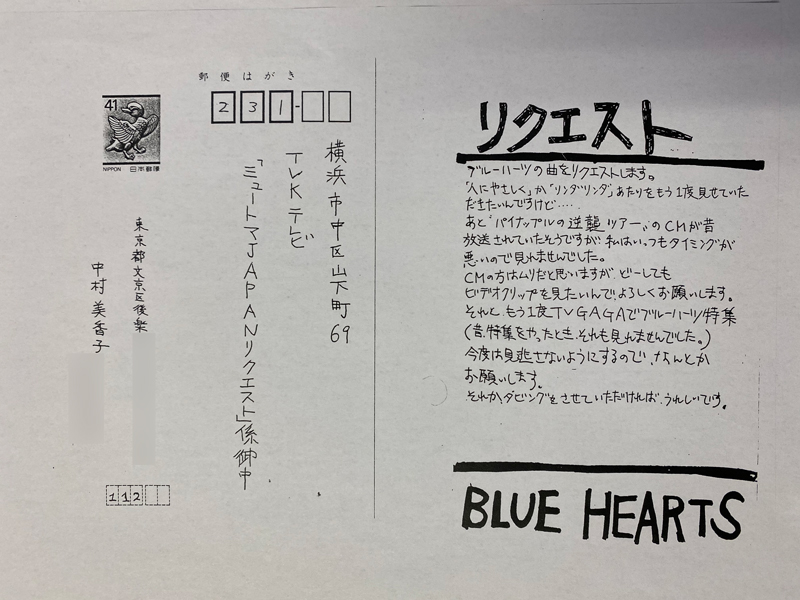 郵便はがき
41
NIPPON 日本郵便
231-
横浜市中区山下町69
TVKテレビ
「ミュートマJAPANリクエスト」係御中
東京都文京区後楽
中村美香子
112
リクエスト
ブルーハーツの曲をリクエストします。
「人にやさしく」か「リンダリンダ」あたりをもう1度見せていた
だきたいんですけど……
あと“パイナップルの逆襲ツアー”のCMが昔
放送されていたそうですが、私はいつもタイミングが
悪いので見れませんでした。
CMの方はムリだと思いますが、どーしても
ビデオクリップを見たいんで、よろしくお願いします。
それと、もう1度TVGAGAでブルーハーツ特集
(昔、特集をやったとき、それも見れませんでした。)
今度は見逃さないようにするので、なんとか
お願いします。
それか、ダビングをさせていただければ、うれしいです。
BLUE HEARTS